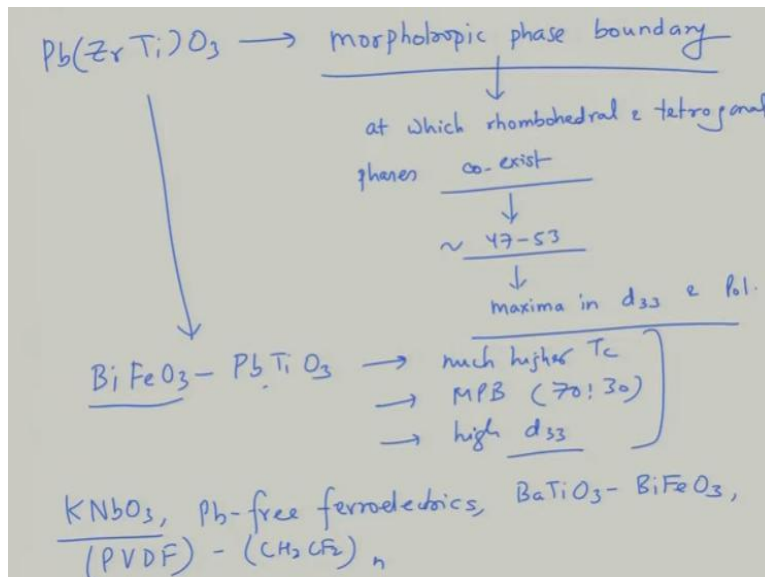 Pb(ZrTi)O3 → morphotropic phase boundary
at which rhombohedral & tetragonal
phases co-exist
~ 47-53
maxima in d33 & Pol.
BiFeO3 - PbTiO3 → much higher Tc
→ MPB (70:30)
→ high d33
KNbO3, Pb-free ferroelectrics, BaTiO3 - BiFeO3,
(PVDF) - (CH2CF2)n